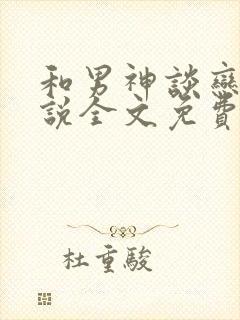 和男神談戀
說全文免費
杜重駿